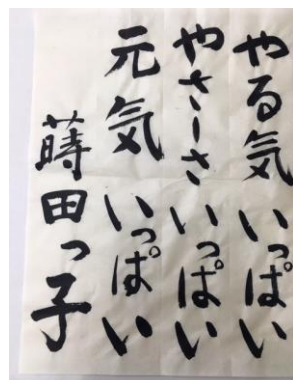 やる気いっぱい
やさしさいっぱい
元気いっぱい
蒔田っ子